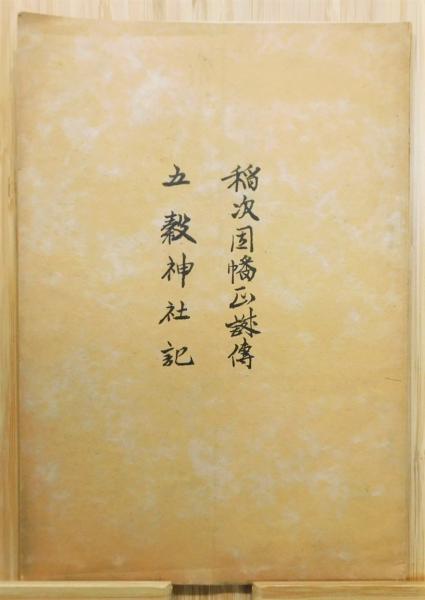 稲次因幡正誠傳
五穀神社記